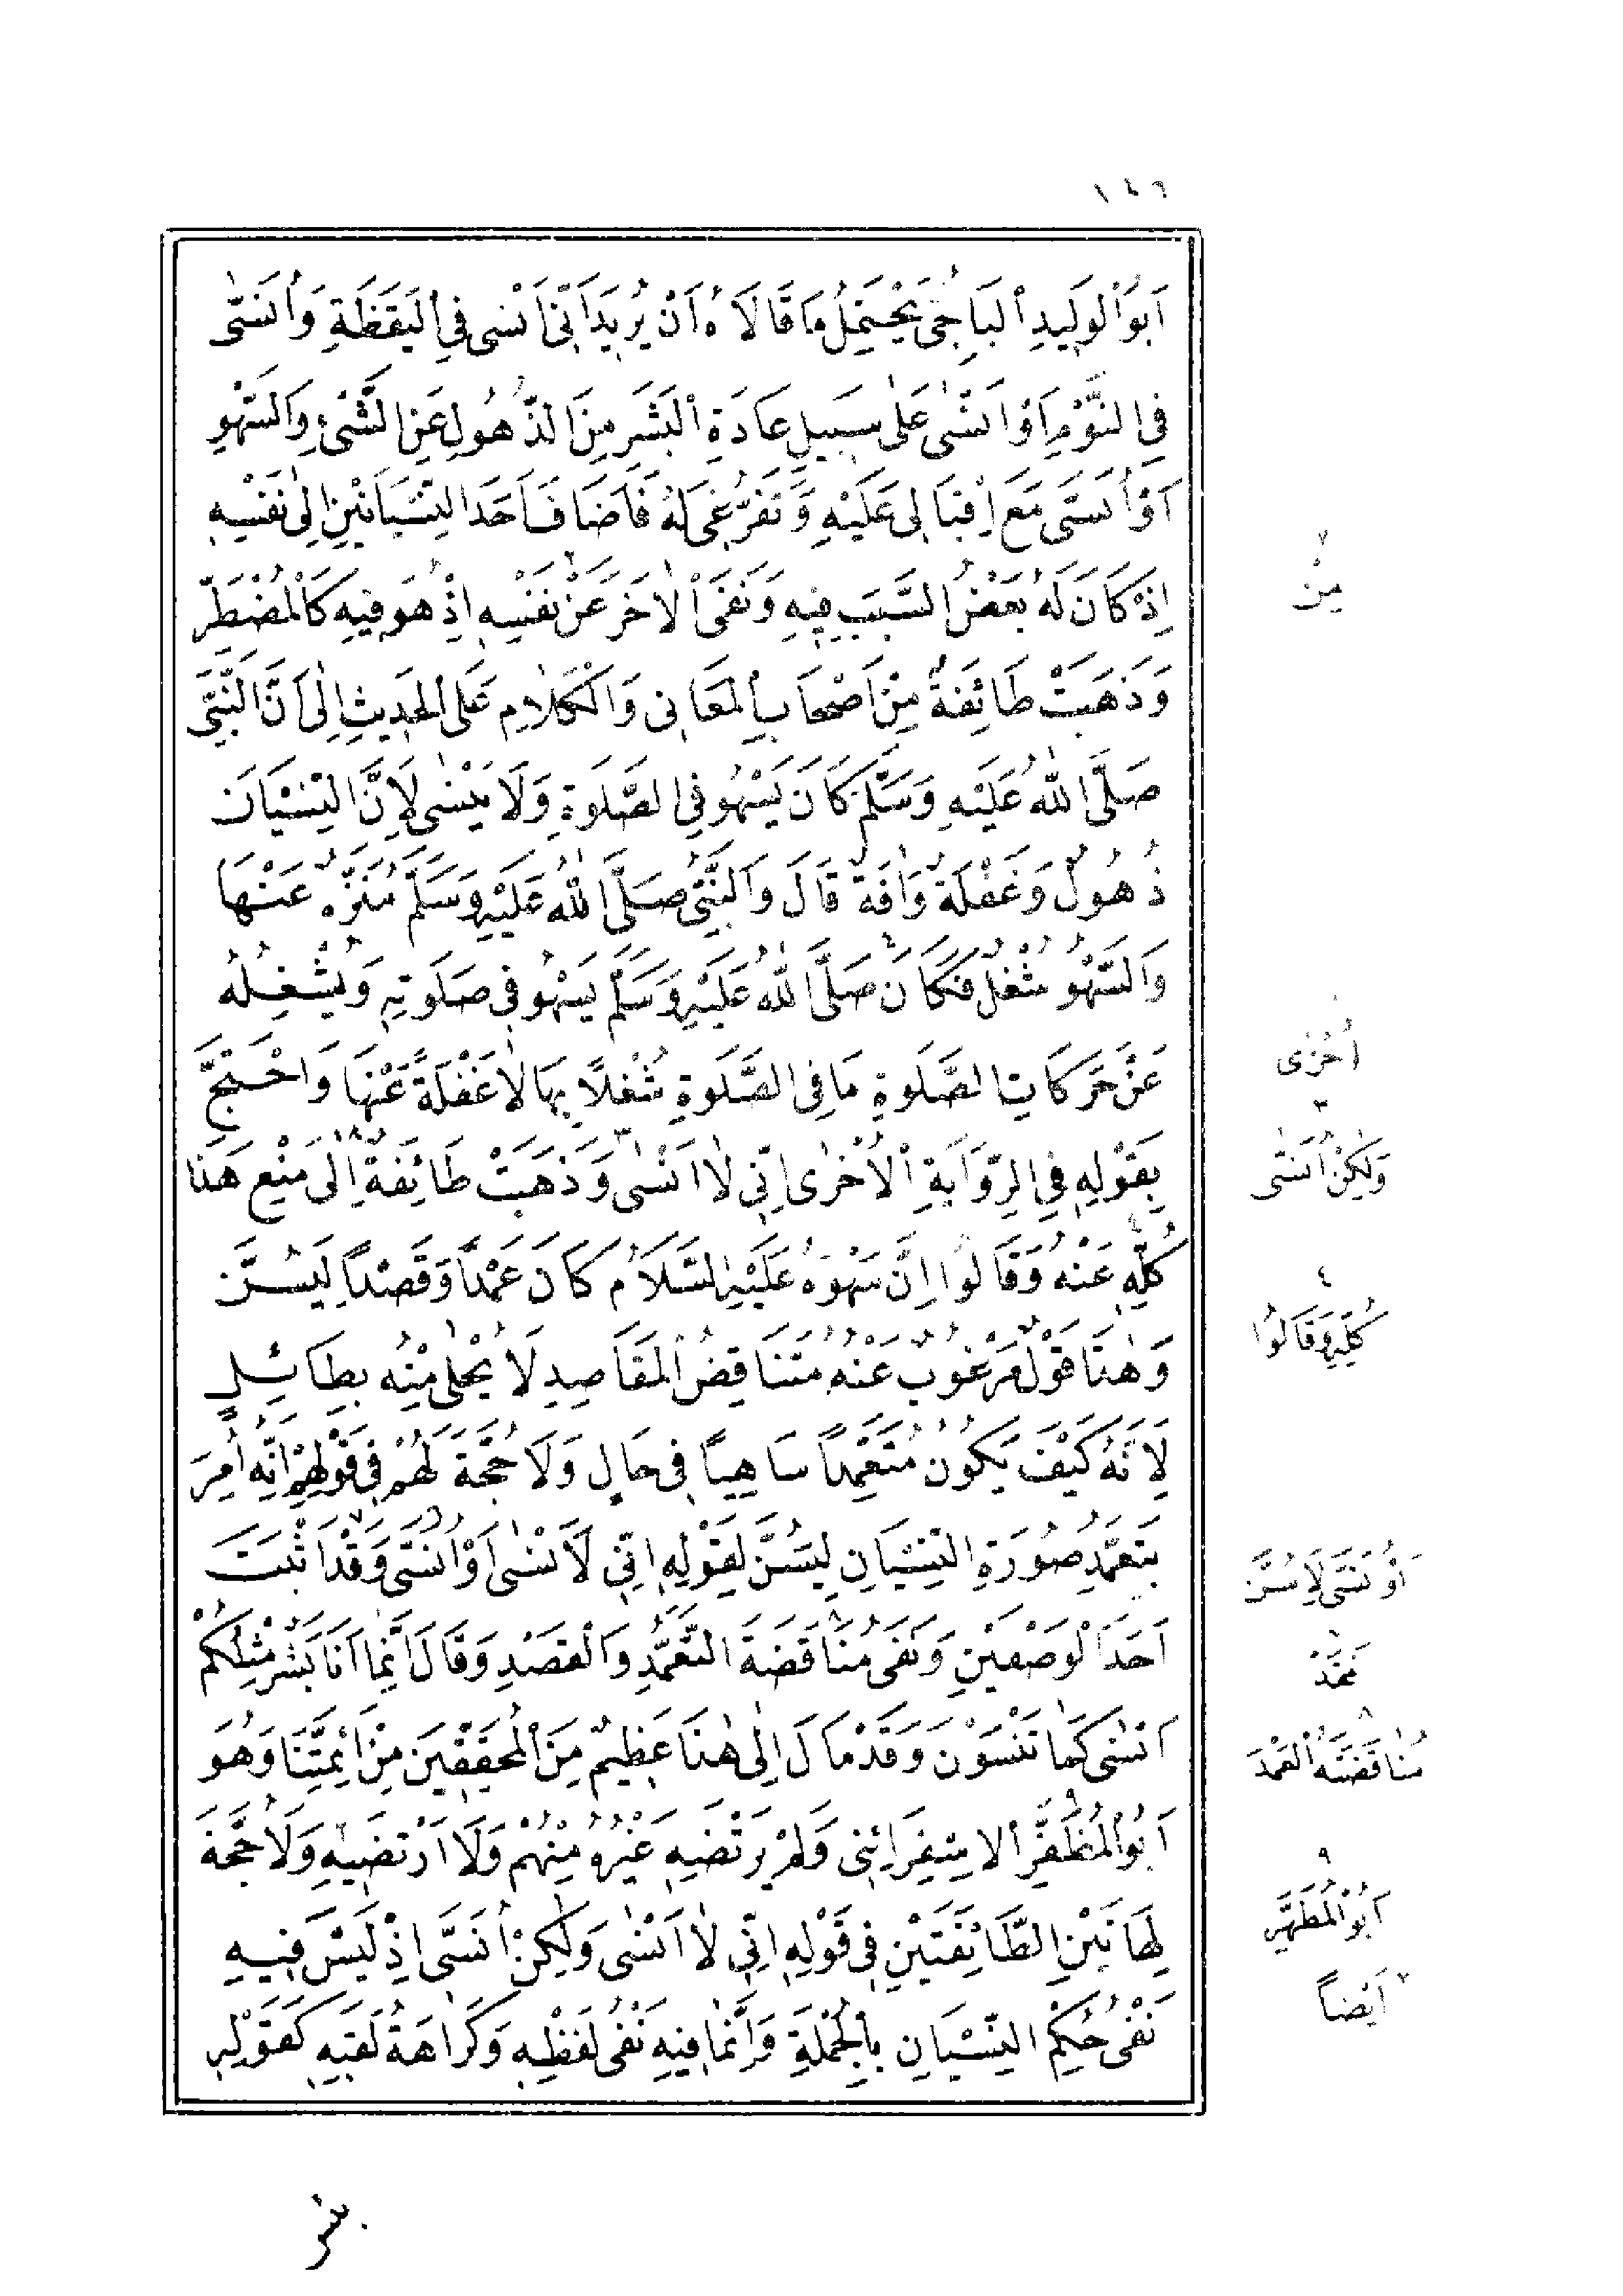 ١٤٦
اَبُو الْوَلِيدِ الْبَاجِىُّ يَحْتَمِلُ مَا قَالَاهُ اَنْ يُرِيدَ اَنِّى اَنْسٰى فِى الْيَقَظَةِ وَاُنَسّٰى
فِى النَّوْمِ اَوْ اَنْسٰى عَلٰى سَبِيلِ عَادَةِ الْبَشَرِ مِنَ الذُّهُولِ عَنِ الشَّىْءِ وَالسَّهْوِ
اَوْ اُنَسّٰى مَعَ اِقْبَالِى عَلَيْهِ وَتَفَرُّغِى لَهُ فَاَضَافَ اَحَدَ النِّسْيَانَيْنِ اِلٰى نَفْسِهِ
اِذْ كَانَ لَهُ بَعْضُ السَّبَبِ فِيهِ وَنَفَى الْاٰخَرَ عَنْ نَفْسِهِ اِذْ هُوَ فِيهِ كَالْمُضْطَرِّ
وَذَهَبَتْ طَائِفَةٌ مِنْ اَصْحَابِ الْمَعَانِى وَالْكَلَامِ عَلَى الْحَدِيثِ اِلٰى اَنَّ النَّبِىَّ
صَلَّى اللّٰهُ عَلَيْهِ وَسَلَّمَ كَانَ يَسْهُو فِى الصَّلٰوةِ وَلَا يَنْسٰى لِاَنَّ النِّسْيَانَ
ذُهُولٌ وَغَفْلَةٌ وَاٰفَةٌ قَالَ وَالنَّبِىُّ صَلَّى اللّٰهُ عَلَيْهِ وَسَلَّمَ مُنَزَّهٌ عَنْهَا
وَالسَّهْوُ شُغْلٌ فَكَانَ صَلَّى اللّٰهُ عَلَيْهِ وَسَلَّمَ يَسْهُو فِى صَلٰوتِهِ وَيُشْغِلُهُ
عَنْ حَرَكَاتِ الصَّلٰوةِ مَا فِى الصَّلٰوةِ شُغْلًا بِهَا لَا غَفْلَةً عَنْهَا وَاحْتَجَّ
بِقَوْلِهِ فِى الرِّوَايَةِ الْاُخْرٰى اِنِّى لَا اَنْسٰى وَذَهَبَتْ طَائِفَةٌ اِلٰى مَنْعِ هٰذَا
كُلِّهِ عَنْهُ وَقَالُوا اِنَّ سَهْوَهُ عَلَيْهِ السَّلَامُ كَانَ عَمْدًا وَقَصْدًا لِيَسُنَّ
وَهٰذَا قَوْلٌ مَرْغُوبٌ عَنْهُ مُتَنَاقِضُ الْمَقَاصِدِ لَا يُحْلٰى مِنْهُ بِطَائِلٍ
لِاَنَّهُ كَيْفَ يَكُونُ مُتَعَمِّدًا سَاهِيًا فِى حَالٍ وَلَا حُجَّةَ لَهُمْ فِى قَوْلِهِمْ اِنَّهُ اُمِرَ
بِتَعَمُّدِ صُورَةِ النِّسْيَانِ لِيَسُنَّ لِقَوْلِهِ اِنِّى لَاَنْسٰى اَوْ اُنَسّٰى وَقَدْ اَثْبَتَ
اَحَدَ الْوَصْفَيْنِ وَنَفٰى مُنَاقَضَةَ التَّعَمُّدِ وَالْقَصْدِ وَقَالَ اِنَّمَا اَنَا بَشَرٌ مِثْلُكُمْ
اَنْسٰى كَمَا تَنْسَوْنَ وَقَدْ مَالَ اِلٰى هٰذَا عَظِيمٌ مِنَ الْمُحَقِّقِينَ مِنْ اَئِمَّتِنَا وَهُوَ
اَبُو الْمُظَفَّرِ الْاِسْفِرَائِنِى وَلَمْ يَرْتَضِهِ غَيْرُهُ مِنْهُمْ وَلَا اَرْتَضِيهِ وَلَا حُجَّةَ
لِهَاتَيْنِ الطَّائِفَتَيْنِ فِى قَوْلِهِ اِنِّى لَا اَنْسٰى وَلٰكِنْ اُنَسّٰى اِذْ لَيْسَ فِيهِ
نَفْىُ حُكْمِ النِّسْيَانِ بِالْجُمْلَةِ وَاِنَّمَا فِيهِ نَفْىُ لَفْظِهِ وَكَرَاهَةُ لَقَبِهِ كَقَوْلِهِ
٢
مِنْ
اُخْرٰى
٣
وَلٰكِنْ اُنَسّٰى
٤
كُلِّهِ وَقَالُوا
اَوْ اُنَسّٰى لِاَسُنَّ
مُنَاقَضَتَهُ الْعَمْدَ
٩
اَبُو الْمُطَهَّرِ
اَيْضًا